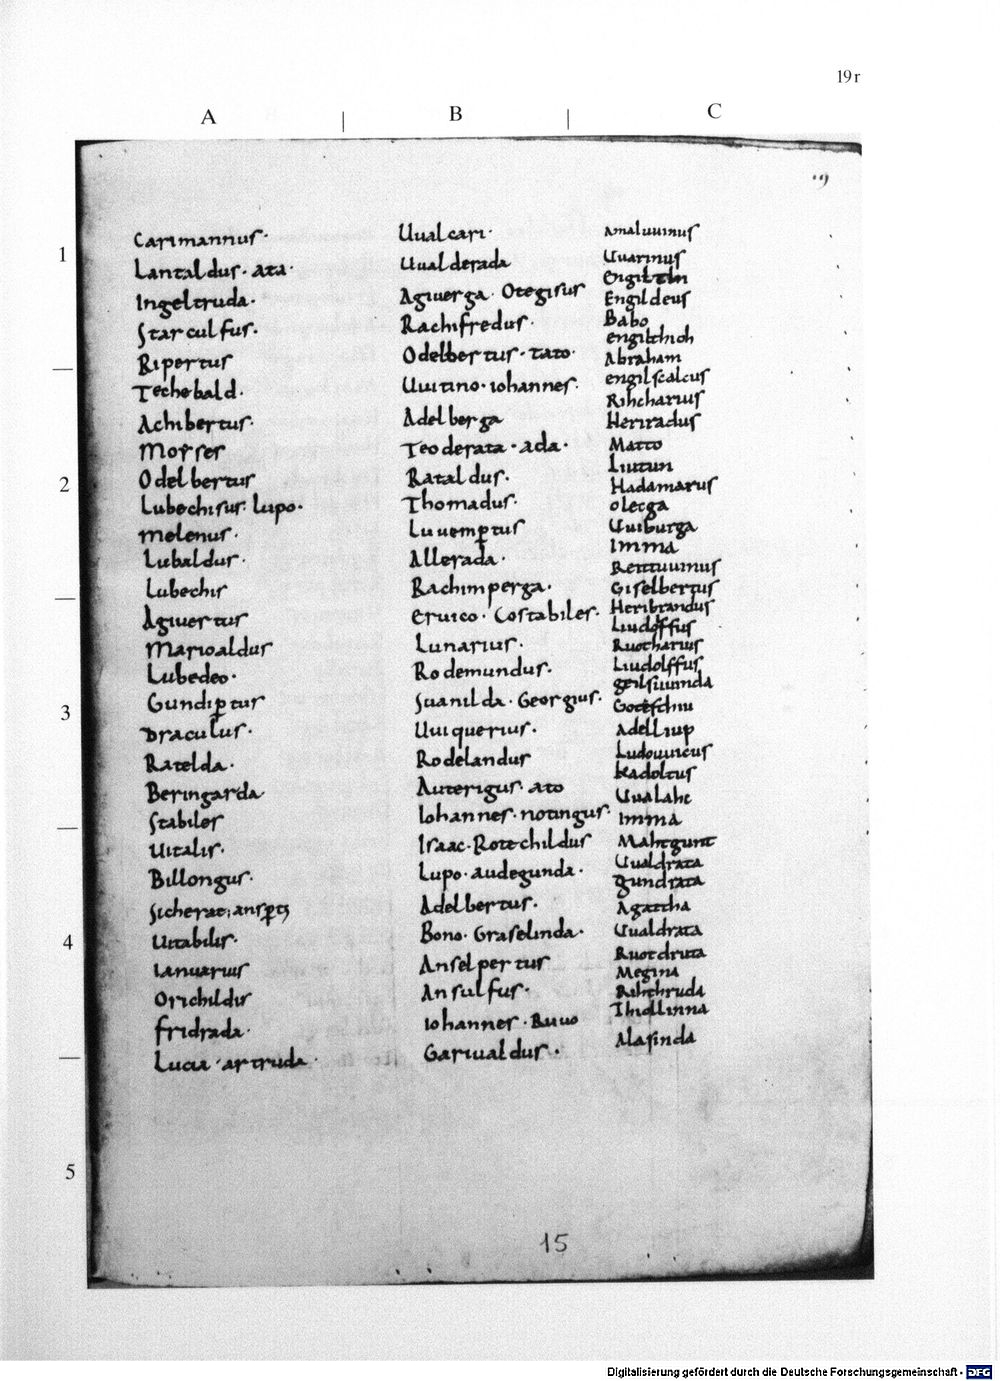 19r
A
B
C
19
1
2
3
4
5
Carimannus·
Lantaldus· ata·
Ingeltruda·
Starculfus·
Ripertus
Techebald·
Achibertus·
Moyses
Odelbertus
Lubechisus· Lupo·
Melenus·
Lubaldus·
Lubechis
Agiuertus
Marioaldus
Lubedeo·
Gundiꝑtus
Draculus·
Ratelda·
Beringarda
Stabiles
Uitalis·
Billongus·
Sicherat; ansꝑtꝫ
Uitabilis·
Ianuarius
Orichildis
Fridrada·
Lucia· artruda·
Uualcari·
Uualderada
Agiuerga· Otegisus
Rachifredus·
Odelbertus· tato·
Uuitino· iohannes·
Adelberga
Teoderata· ada·
Rataldus·
Thomadus·
Luuemꝑtus
Allerada·
Rachimperga·
Eruico· Costabiles·
Lunarius·
Rodemundus·
Suanilda· Georgius·
Uuiquerius·
Rodelandus
Auterigus· ato
Iohannes· notingus·
Isaac· Rotechildus
Lupo· audegunda·
Adelbertus·
Bono· Graselinda·
Anselpertus
Ansulfus·
Iohannes· Ruuo
Gariualdus·
Amaluuinus
Uuarinus
Engildeus
Babo
engilthioh
Abraham
engilscalcus
Rihcharius
Heriradus
Matto
Liutun
Hadamarus
olecga
Uuiburga
Imma
Rettuuinus
Giselbertus
Heribrandus
Liudolffus
Ruotharius
Liudolffus
geilsuuinda
Adelliup
Ludouuicus
Kadoltus
Uualahc
Imma
Mahtgunt
Uualdrata
gundrata
Agattha
Uualdrata
Ruotdruta
Megina
Rihthruda
Thiollinna
Alasinda
15
Digitalisierung gefördert durch die Deutsche Forschungsgemeinschaft - DFG